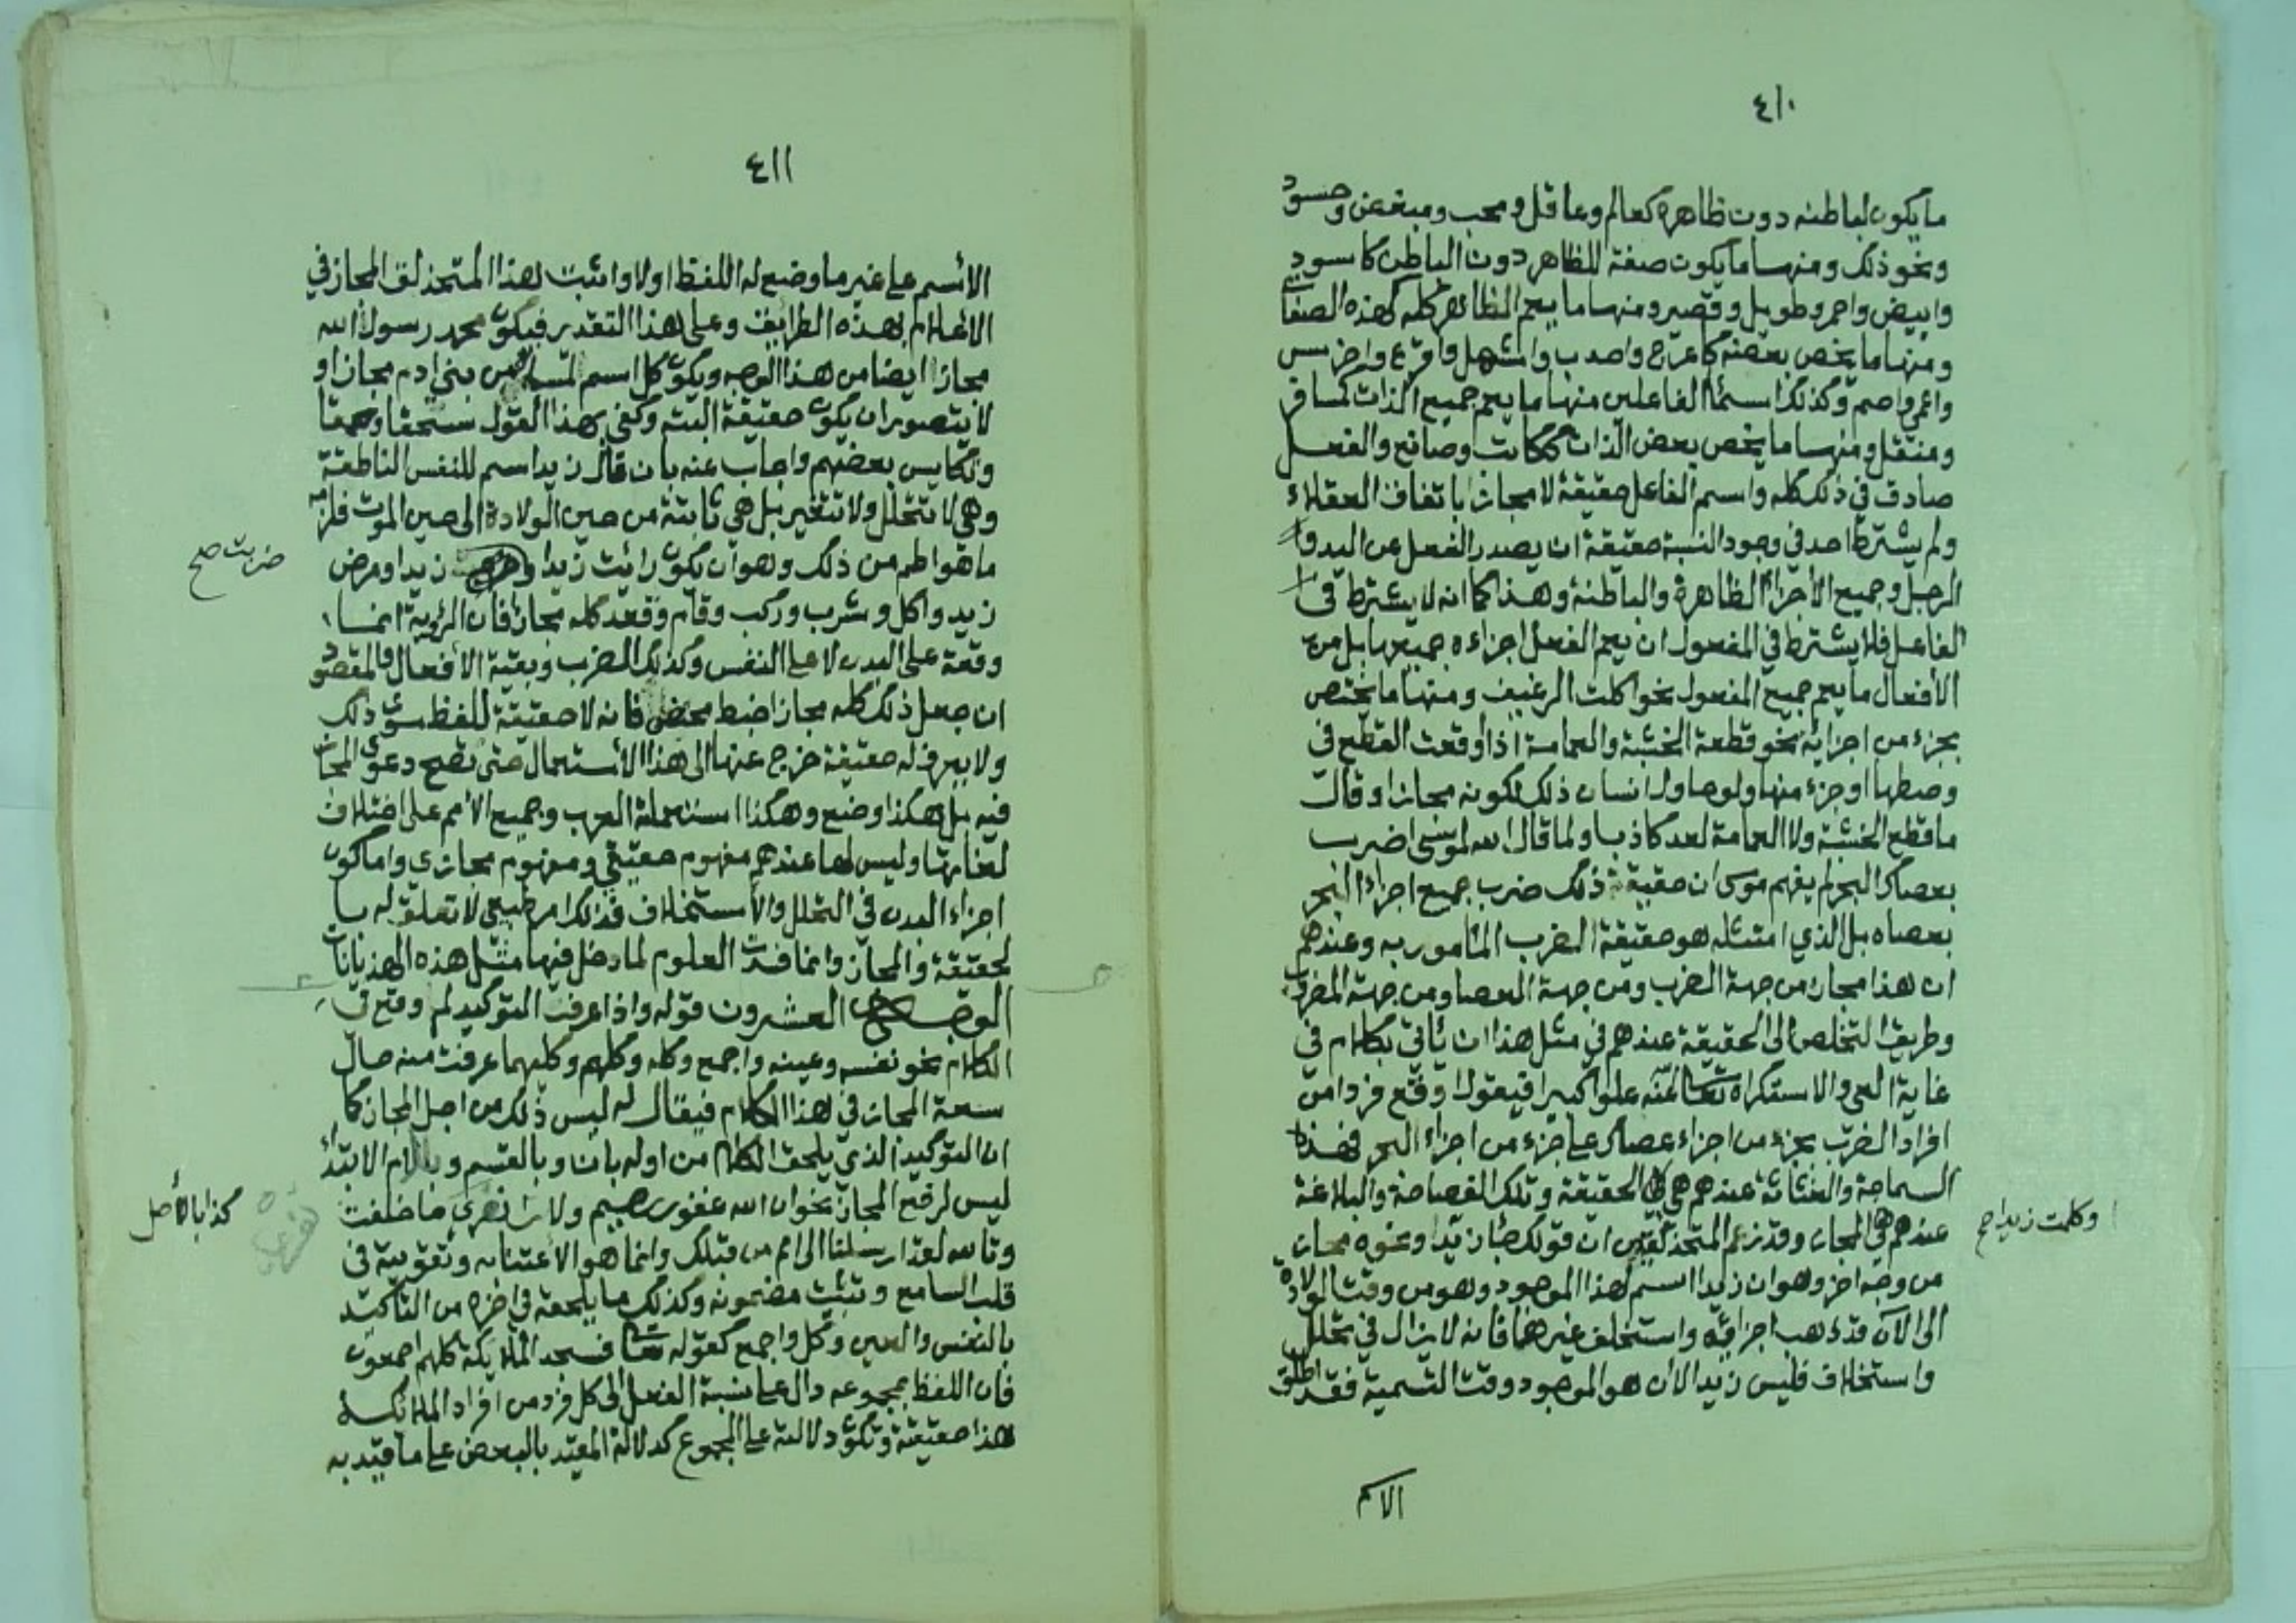 ٤١٠
ما يكون لباطنه دون ظاهره كعالم وعاقل ومحب ومبغض وحسود
ونحو ذلك ومنها ما يكون صفة للظاهر دون الباطن كاسود
وابيض واحمر وطويل وقصير ومنها ما يعم الظاهر كله كهذه الصفات
ومنها ما يخص بعضه كاعرج واحدب واشهل واقرع واخرس
واعمى واصم وكذلك اسماء الفاعلين منها ما يعم جميع الذات كمسافر
ومنتقل ومنها ما يخص بعض الذات ككاتب وصانع والفعل
صادق في ذلك كله واسم الفاعل حقيقة لا مجازا باتفاق العقلاء
ولم يشترط احد في وجود النسبة حقيقة ان يصدر الفعل عن اليد و
الرجل وجميع الأجزاء الظاهرة والباطنة وهذا كما انه لا يشترط في
الفاعل فلا يشترط في المفعول ان يعم الفعل اجزاءه جميعها بل من
الأفعال ما يعم جميع المفعول نحو اكلت الرغيف ومنها ما يختص
بجزء من اجزايه نحو قطعة الخشبة والعمامة اذا اوقعت القطع في
وصطها او جزء منها ولو حاول انسان ذلك لكونه مجازا وقال
ما قطع الخشبة ولا العمامة لعد كاذبا ولما قال الله لموسى اضرب
بعصاك البحر لم يفهم موسى ان حقيقة ذلك ضرب جميع اجزاء البحر
بعصاه بل الذي امتثله هو حقيقة الضرب المأمور به وعندهم
ان هذا مجاز من جهة الضرب ومن جهة العصا ومن جهة المضروب
وطريق التخلص الى الحقيقة عندهم في مثل هذا ان يأتي بكلام في
غاية العي والاستكراه تعالى الله عنه علوا كبيرا فيقول اوقع فردا من
افراد الضرب بجزء من اجزاء عصاك على جزء من اجزاء البحر فهذه
السماجة والغثاثة عندهم هي الحقيقة وتلك الفصاحة والبلاغة
عندهم هي المجاز وقد زعم المتحذلقين ان قولك جا زيدا ونحوه مجاز
وكلمت زيدا صح
من وجه اخر وهو ان زيدا اسم لهذا الموجود وهو من وقت الولادة
الى الآن قد ذهب اجزائه واستخلف غيرها فانه لا يزال في تحلل
واستخلاف فليس زيد الآن هو الموجود وقت التسمية فقد اطلق
الاسم
٤١١
الأسم على غير ما وضع له اللفظ اولا واثبت هذا المتحذلق المجاز في
الاعلام بهذه الطرايف وعلى هذا التقدير فيكون محمد رسول الله
مجازا ايضا من هذا الوجه ويكون كل اسم لمسمى من بني ادم مجاز او
لا يتصور ان يكون حقيقة البتة وكفى بهذا القول سخفا وحمقا
وتكايس بعضهم واجاب عنه بان قال زيد اسم للنفس الناطقة
وهي لا تتحلل ولا تتغير بل هي ثابتة من حين الولادة الى حين الموت فلزمه
ما هو اطم من ذلك وهو ان يكون رائيت زيدا و زيدا ومرض
ضربت صح
زيد واكل وشرب وركب وقام وقعد كله مجاز فان الرؤية انما
وقعة على البدن لا على النفس وكذلك الضرب وبقية الأفعال والمقصود
ان جعل ذلك كله مجاز اخبط محض فانه لا حقيقة للفظ سوى ذلك
ولا يعرف له حقيقة خرج عنها الى هذا الأستعمال حتى تصح دعوى المجاز
فيه بل هكذا وضع وهكذا استعملته العرب وجميع الأمم على اختلاف
لغاتها وليس لها عندهم مفهوم حقيقي ومفهوم مجازي واما كون
اجزاء البدن في التحلل والأستخلاف فذلك امر طبيعي لا تعلق له با
لحقيقة والمجاز وانما فسدت العلوم لما دخل فيها مثل هذه الهذيانات
الوجه العشرون قوله واذا عرفت التوكيد لم وقع في
الكلام نحو نفسه وعينه واجمع وكله وكلهم وكليهما عرفت منه حال
سعة المجاز في هذا الكلام فيقال له ليس ذلك من اجل المجاز كما
ان التوكيد الذي يلحق الكلام من اوله بان وبالقسم وبلام الابتداء
ليس لرفع المجاز نحو ان الله غفور رحيم ولانت تفري ما خلقت
كذا بالأصل
وتالله لقد ارسلنا الى امم من قبلك وانما هو الاعتناء به وتقويته في
قلب السامع وتثبيت مضمونه وكذلك ما يلحقه في اخره من التاكيد
بالنفس والعين وكل واجمع كقوله تعالى فسجد الملايكة كلهم اجمعون
فان اللفظ بمجموعه دال على نسبة الفعل الى كل فرد من افراد الملائكة
هذا حقيقة وتكون دلالته على المجموع كدلالة المقيد بالبعض على ما قيد به